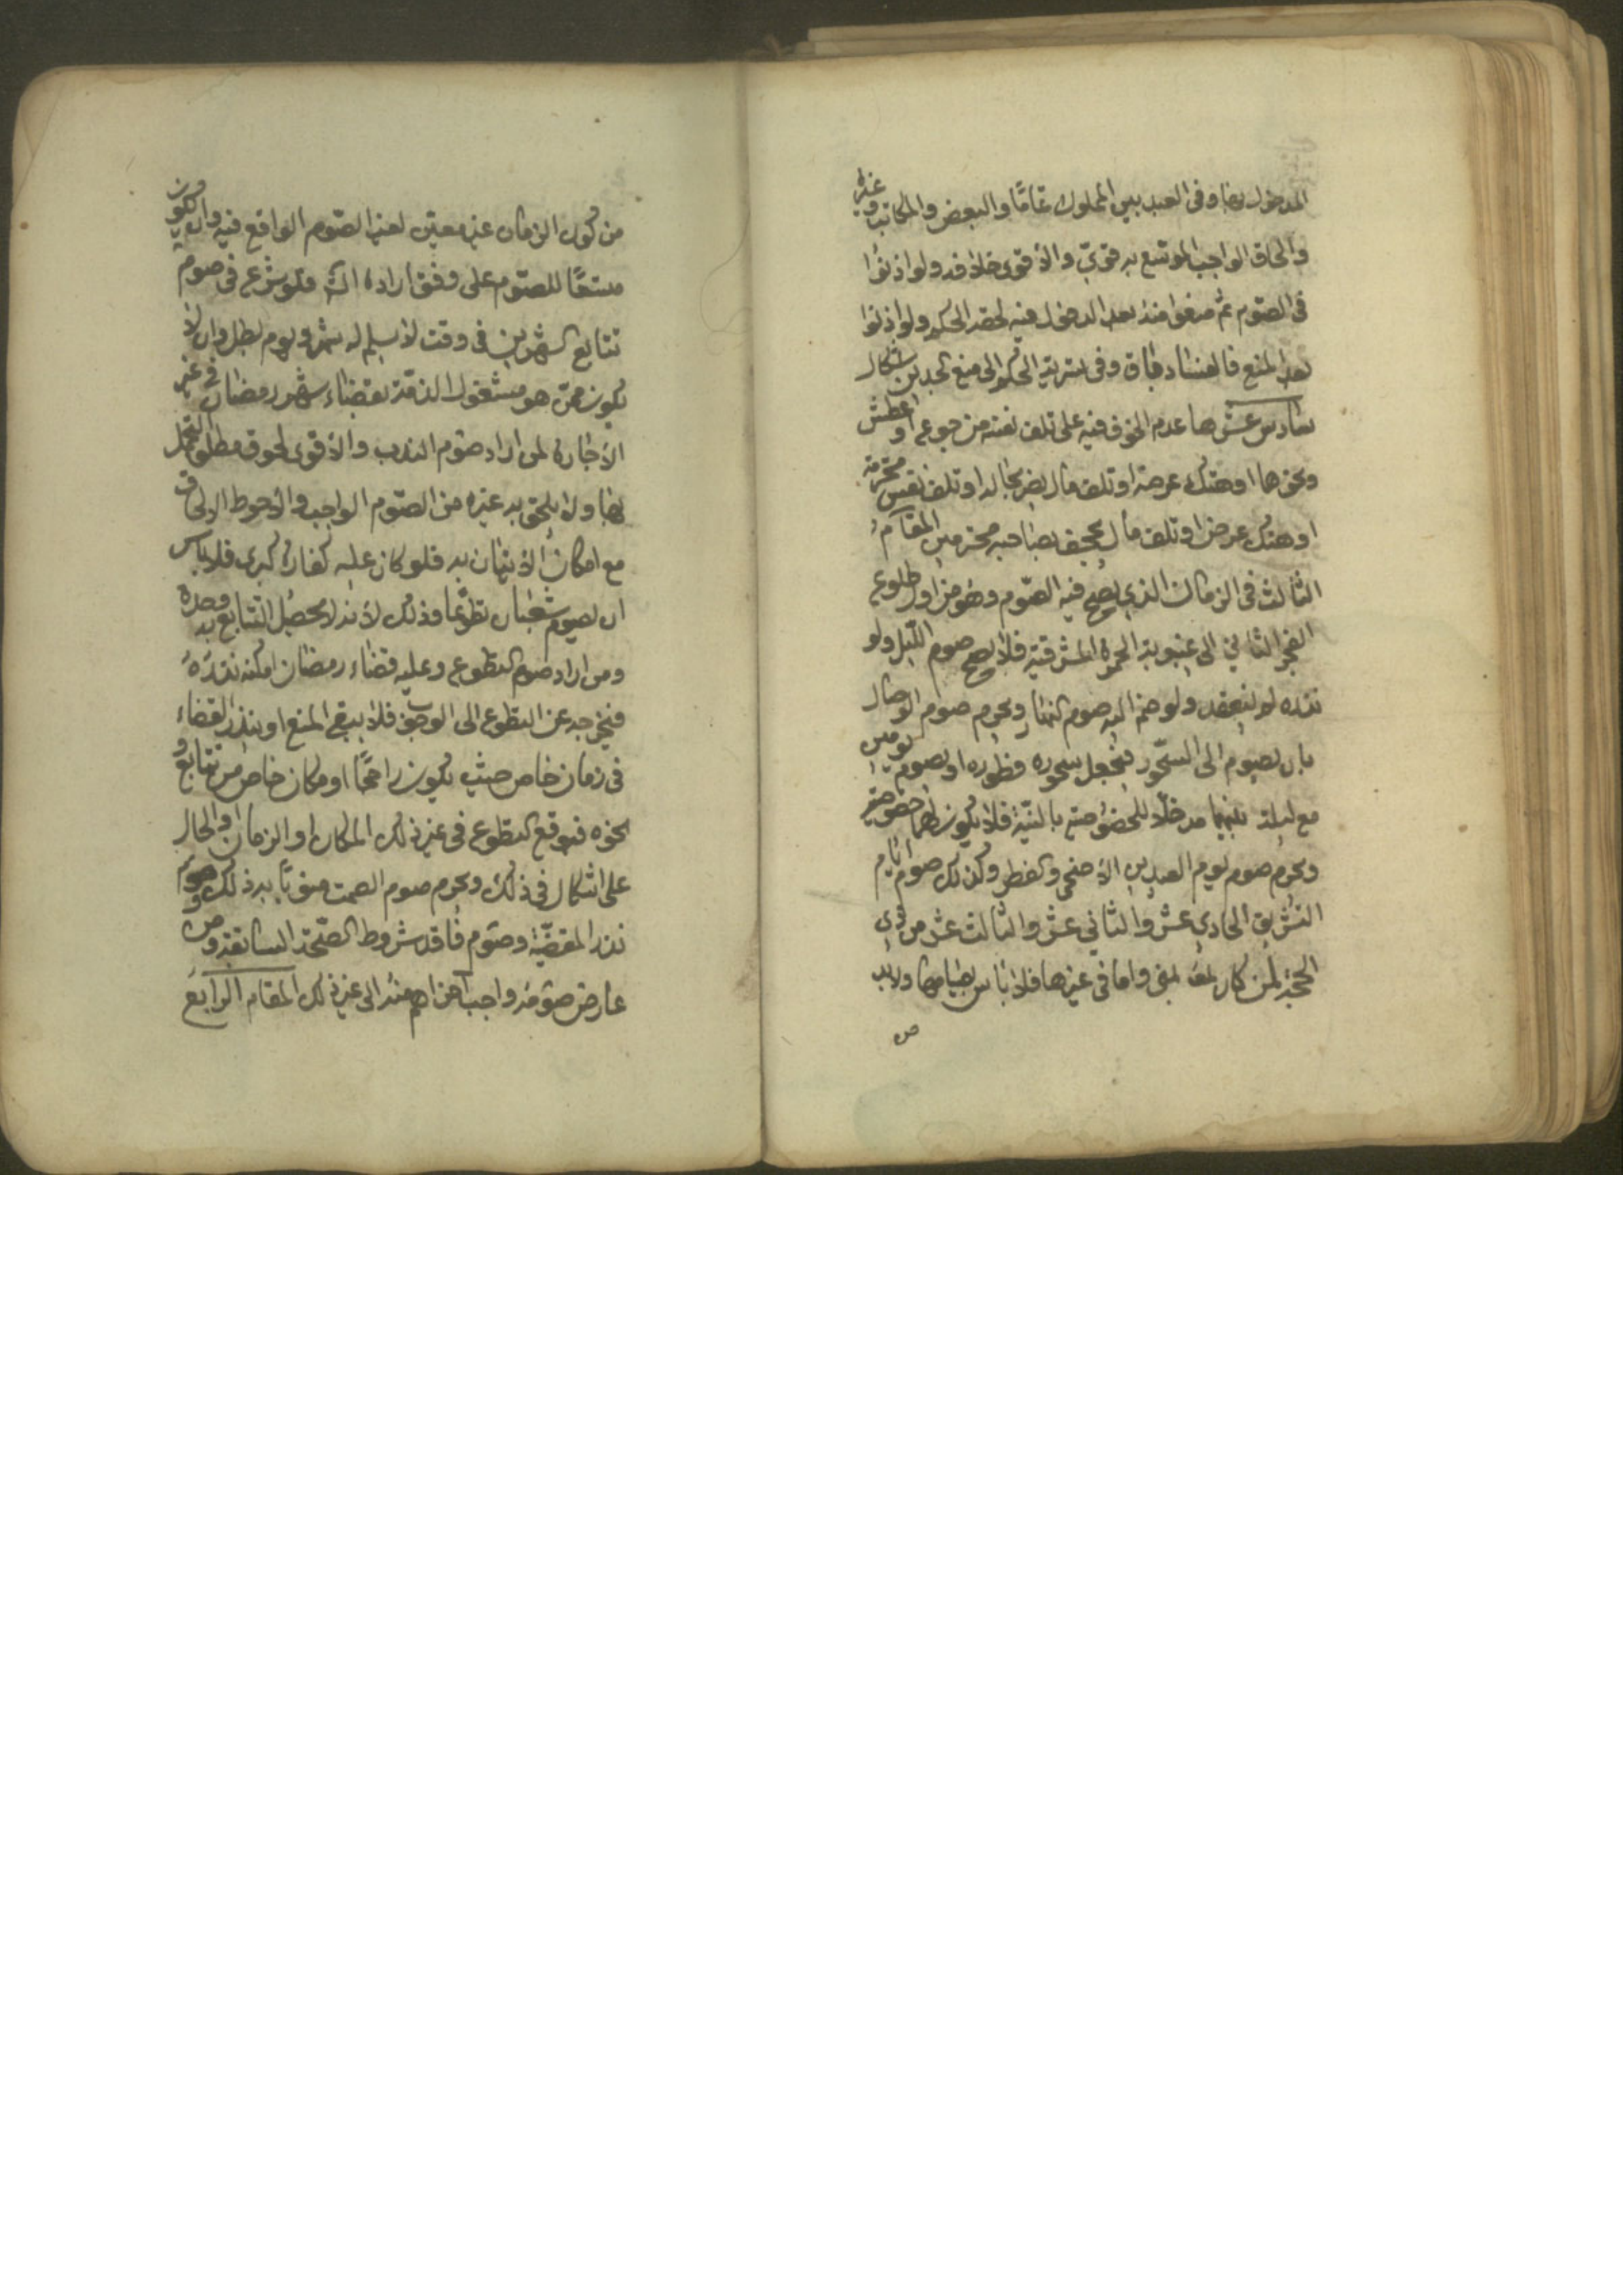 المدخول بها وفي العبد بين المملوك تماما والبعض والمكاتب وغيره
والحاق الواجب الموسع به قوي والاقوى خلافه ولو اذنوا
في الصوم ثم منعوا منه بعد الدخول فيه لحقه الحكم ولو اذنوا
بعد المنع فالفساد باق وفي تسرية الحكم الى منع الجدين اشكال
سادس عشرها عدم الخوف فيه على تلف نفسه من جوع او عطش
ونحوهما او هتك عرضه او تلف مال يضر بحاله او تلف نفس محترمة
او هتك عرض او تلف مال يجحف بصاحبه محترمين المقام
الثالث في الزمان الذي يصح فيه الصوم وهو من اول طلوع
الفجر الثاني الى غيبوبة الحمرة المشرقية فلا يصح صوم الليل ولو
نذره لم ينعقد ولو ضم اليه صوم النهار ويحرم صوم الوصال
بان يصوم الى السحور فيجعل سحوره فطوره او يصوم يومين
مع ليلة بينهما مدخلا للخصوصية بالنية فلا يكون لهما خصوصية
ويحرم صوم يوم العيدين الاضحى والفطر وكذلك صوم ايام
التشريق الحادي عشر والثاني عشر والثالث عشر من ذي
الحجة لمن كان بمنى واما في غيرها فلا باس بصيامها ولابد
من كون الزمان غير معين لغير الصوم الواقع فيه وان يكون
متسعا للصوم على وفق اراده فلو شرع في صوم
تتابع الشهرين في وقت لا يسلم له شهر ويوم بطل وان لا
يكون ممن هو مشغول الذمة بقضاء شهر رمضان في غير
الاجارة لمن اراد صوم الندب والاقوى لحوق مطلق التحمل
بها ولا يلحق به غيره من الصوم الواجب والاحوط الالحاق
مع امكان الاتيان به فلو كان عليه كفارة كبرى فلا باس
ان يصوم شعبان تطوعا وذلك لانه لا يحصل التتابع به وحده
ومن اراد صوم التطوع وعليه قضاء رمضان امكنه نذره
فيخرجه عن التطوع الى الوجوب فلا يبقى المنع او ينذر القضاء
في زمان خاص حيث يكون راجحا او مكان خاص من تتابع و
نحوه فيوقع التطوع في غير ذلك المكان او الزمان او الحال
على اشكال في ذلك ويحرم صوم الصمت منويا به ذلك وصوم
نذر المعصية وصوم فاقد شروط الصحة السابقة ومن
عارض صومه واجب اهم منه الى غير ذلك المقام الرابع